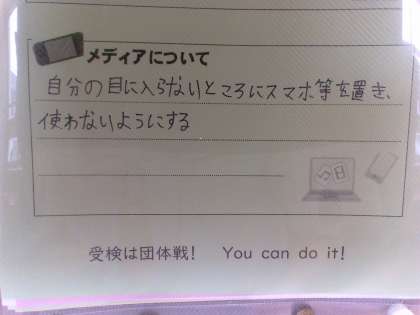 メディアについて
自分の目に入らないところにスマホ等を置き、
使わないようにする
今日
受検は団体戦! You can do it!